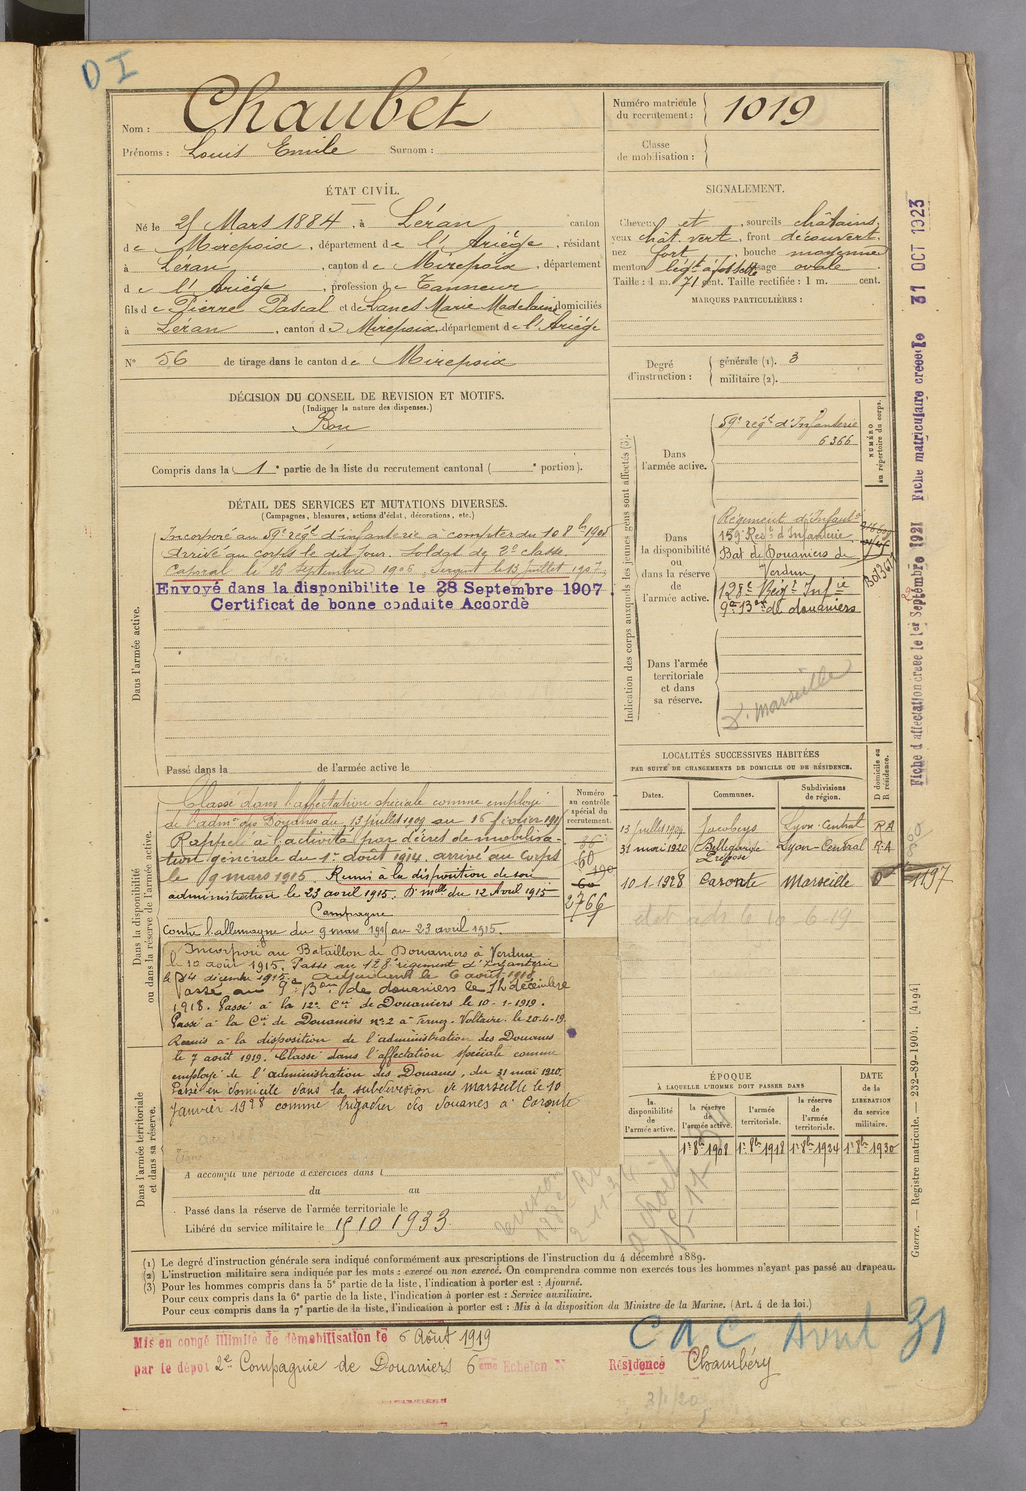 D I
Nom : Chaubet
Prénoms : Louis Emile Surnom :
Numéro matricule du recrutement : 1019
Classe de mobilisation :
ÉTAT CIVIL.
Né le 25 Mars 1884, à Léran canton
de Mirepoix, département de l'Ariège, résidant
à Léran, canton de Mirepoix, département
de l'Ariège, profession de Tanneur
fils de Pierre Pascal et de Lanes Marie Madelaine domiciliés
à Léran, canton de Mirepoix, département de l'Ariège
N° 56 de tirage dans le canton de Mirepoix
SIGNALEMENT.
Cheveux et, sourcils châtains,
yeux chât. vert, front découvert,
nez fort, bouche moyenne
menton légt à fossette visage ovale
Taille : 1 m. 71 cent. Taille rectifiée : 1 m. cent.
MARQUES PARTICULIÈRES :
Degré d'instruction : générale (1). 3
militaire (2).
DÉCISION DU CONSEIL DE REVISION ET MOTIFS.
(Indiquer la nature des dispenses.)
Bon
Compris dans la 1e partie de la liste du recrutement cantonal ( e portion).
DÉTAIL DES SERVICES ET MUTATIONS DIVERSES.
(Campagnes, blessures, actions d'éclat, décorations, etc.)
Dans l'armée active.
Incorporé au 59e régt d'infanterie à compter du 10 8bre 1905
Arrivé au corps le dit jour. Soldat de 2e classe
Caporal le 26 Septembre 1906, Sergent le 13 Juillet 1907
Envoyé dans la disponibilite le 28 Septembre 1907
Certificat de bonne conduite Accordè
Passé dans la de l'armée active le
Indication des corps auxquels les jeunes gens sont affectés (3).
NUMÉRO au répertoire du corps.
Dans l'armée active.
59e régt d'Infanterie
6366
Dans la disponibilité ou dans la réserve de l'armée active.
Régiment d'Infant
159e Regt d'Infanterie
Bat de Douaniers de
Verdun
128e Régt Infie
9e Bon de douaniers
Dans l'armée territoriale et dans sa réserve.
D. Marseille
LOCALITÉS SUCCESSIVES HABITÉES
PAR SUITE DE CHANGEMENTS DE DOMICILE OU DE RÉSIDENCE.
Dates. Communes. Subdivisions de région. D domicile ou R résidence.
13 Juillet 1909 Lyon-Central R A
31 mai 1920 Bellegarde Lyon-Central R.A
10-1-1928 Caronte Marseille D 1197
Dans la disponibilité ou dans la réserve de l'armée active.
Numéro au contrôle spécial du recrutement.
2766
Classé dans l'affectation spéciale comme employé
de l'admon des Douanes du 13 Juillet 1909 au 16 février 1915
Rappelé à l'activité par décret de mobilisa-
tion générale du 1er août 1914. arrivé au corps
le 9 mars 1915. Remis à la disposition de son
administration le 23 avril 1915. D. mlle du 12 Avril 1915
Campagne
Contre l'allemagne du 9 mars 1915 au 23 avril 1915.
Incorporé au Bataillon de Douaniers à Verdun
le 12 août 1915. Passé au 128e régiment d'Infanterie
le 14 décembre 1915. Adjudant le 6 août 1918
Passé au 9e Bon de douaniers le 14 décembre
1918. Passé à la 12e Cie de Douaniers le 10-1-1919.
Passé à la Cie de Douaniers no 2 à Ferney-Voltaire le 20-4-19.
Remis à la disposition de l'administration des Douanes
le 7 août 1919. Classé dans l'affectation spéciale comme
employé de l'administration des Douanes, du 31 mai 1920.
Passé en domicile dans la subdivision de Marseille le 10
Janvier 1928 comme brigadier des douanes à Caronte
Dans l'armée territoriale et dans sa réserve.
A accompli une période d'exercices dans l
du au
Passé dans la réserve de l'armée territoriale le
Libéré du service militaire le 15 10 1933
ÉPOQUE
À LAQUELLE L'HOMME DOIT PASSER DANS
la disponibilité de l'armée active.
la réserve de l'armée active.
l'armée territoriale.
la réserve de l'armée territoriale.
DATE de la LIBÉRATION du service militaire.
1er 8bre 1908 1er 8bre 1918 1er 8bre 1924 1er 8bre 1930
(1) Le degré d'instruction générale sera indiqué conformément aux prescriptions de l'instruction du 4 décembre 1889.
(2) L'instruction militaire sera indiquée par les mots : exercé ou non exercé. On comprendra comme non exercés tous les hommes n'ayant pas passé au drapeau.
(3) Pour les hommes compris dans la 5e partie de la liste, l'indication à porter est : Ajourné.
Pour ceux compris dans la 6e partie de la liste, l'indication à porter est : Service auxiliaire.
Pour ceux compris dans la 7e partie de la liste, l'indication à porter est : Mis à la disposition du Ministre de la Marine. (Art. 4 de la loi.)
Mis en congé illimité de démobilisation le 6 Août 1919
par le dépot 2e Compagnie de Douaniers 6eme Echelon N Résidence Chambéry
C A C Avril 31
Fiche d affectation créée le 1er Septembre 1921 Fiche matriculaire créée le 31 OCT 1923
Guerre. — Registre matricule. — 232-89-1904. [4194]